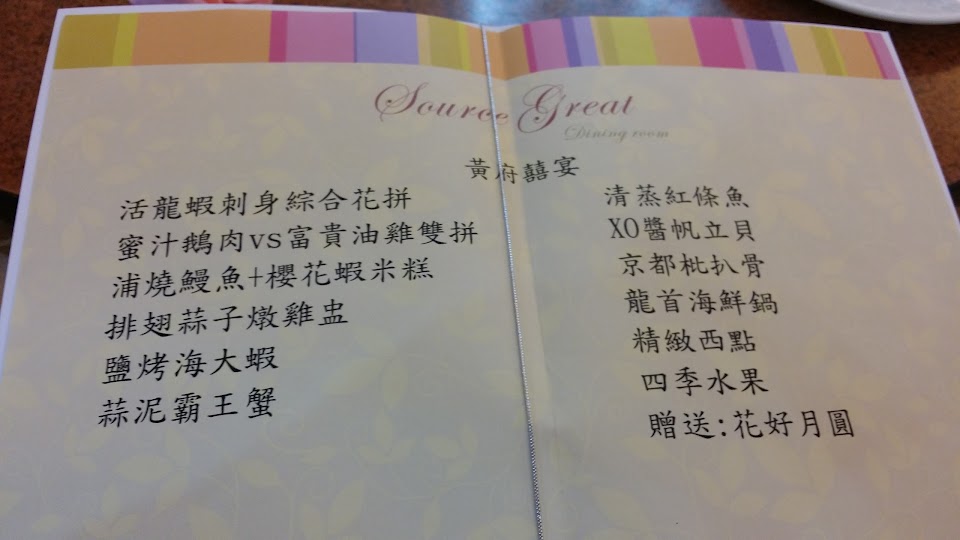 Source Great
Dining room
黃府囍宴
活龍蝦刺身綜合花拼
蜜汁鵝肉vs富貴油雞雙拼
浦燒鰻魚+櫻花蝦米糕
排翅蒜子燉雞盅
鹽烤海大蝦
蒜泥霸王蟹
清蒸紅條魚
XO醬帆立貝
京都枇扒骨
龍首海鮮鍋
精緻西點
四季水果
贈送:花好月圓